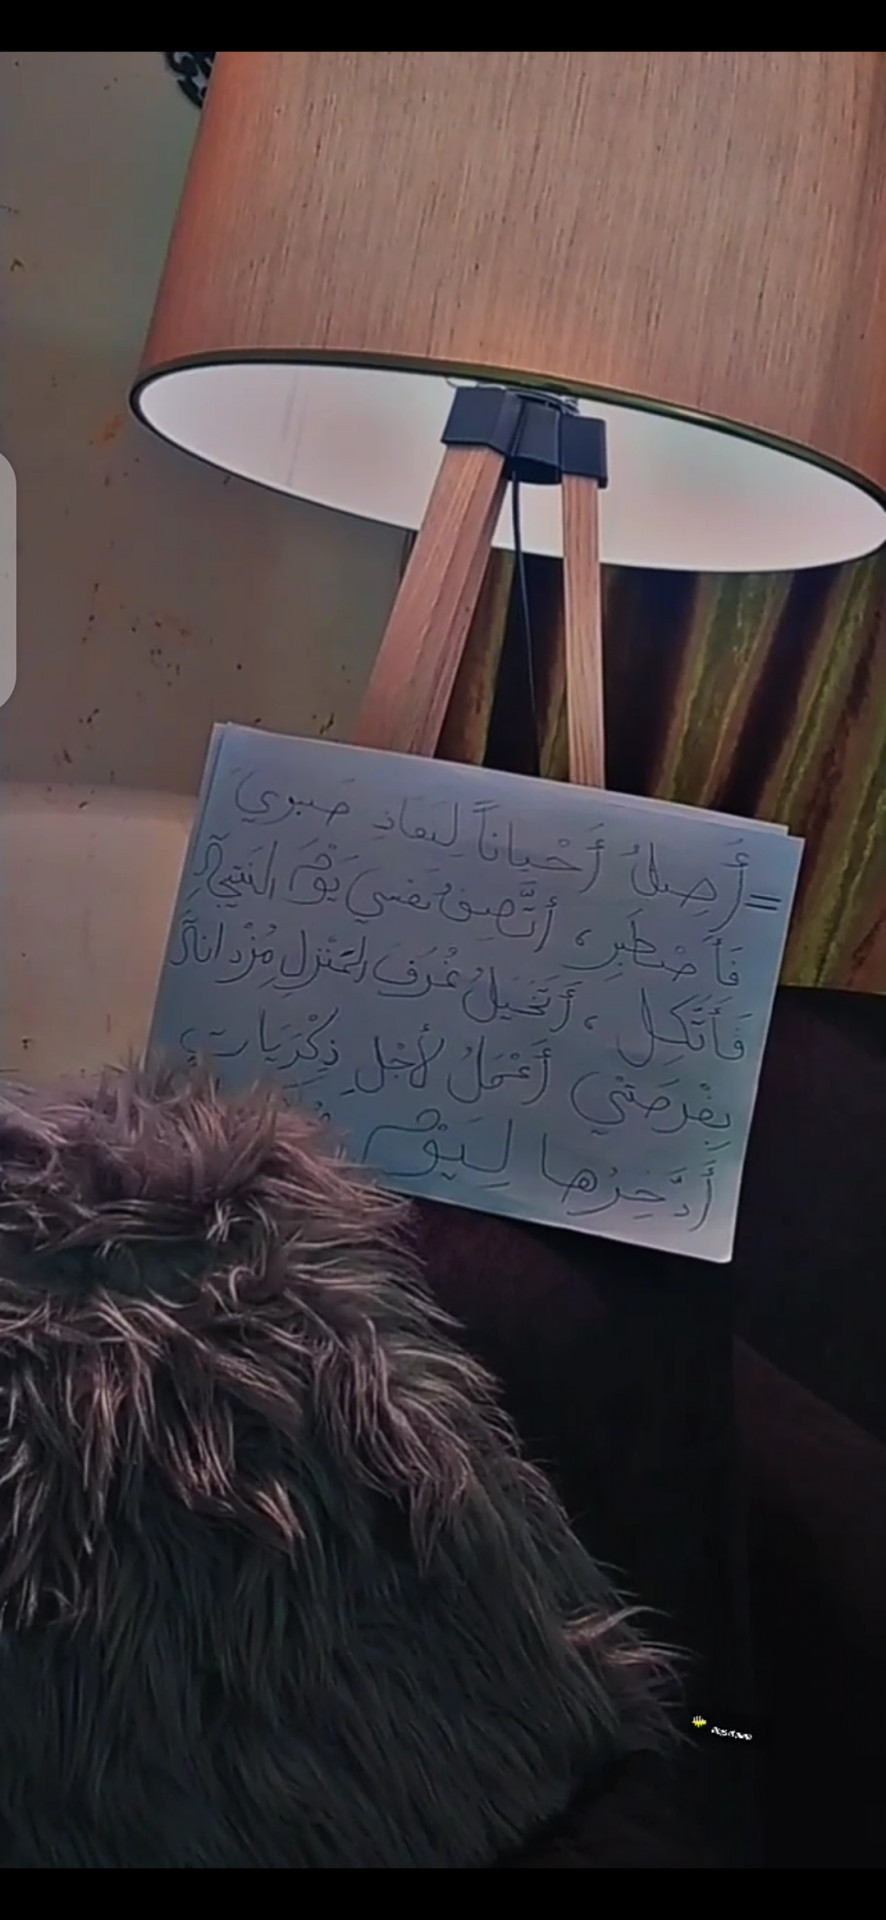 = أَصِلُ أَحْياناً لِنَفاذِ صَبري
فَأَصْطَبِر، أَتَّصِفُ نَفسي يَوْمَ النَتيجَةِ
فَأَتَّكِل، أَتَخَيَّلُ غُرَفَ المَنْزِلِ مُزْدانَةً
بِفُرصَتي أَعْمَلُ لأَجْلِ ذِكْرَياتٍ
أَدَّخِرُها لِيَوْمٍ